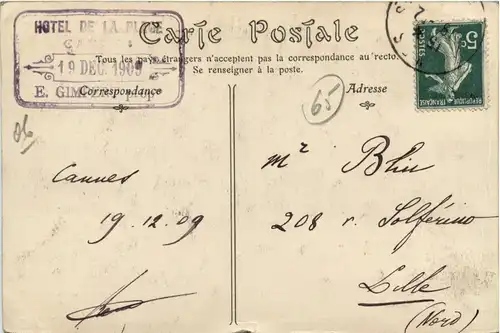 HOTEL DE LA PLACE
19 DEC. 1909
E. GIMPERT prop
Carte Postale
Tous les pays étrangers n'acceptent pas la correspondance au recto.
Se renseigner à la poste.
Correspondance
Adresse
65
06
Cannes
19.12.09
Mr Blin
208 r. Solférino
Lille
(Nord)
5c
POSTES
REPUBLIQUE FRANÇAISE